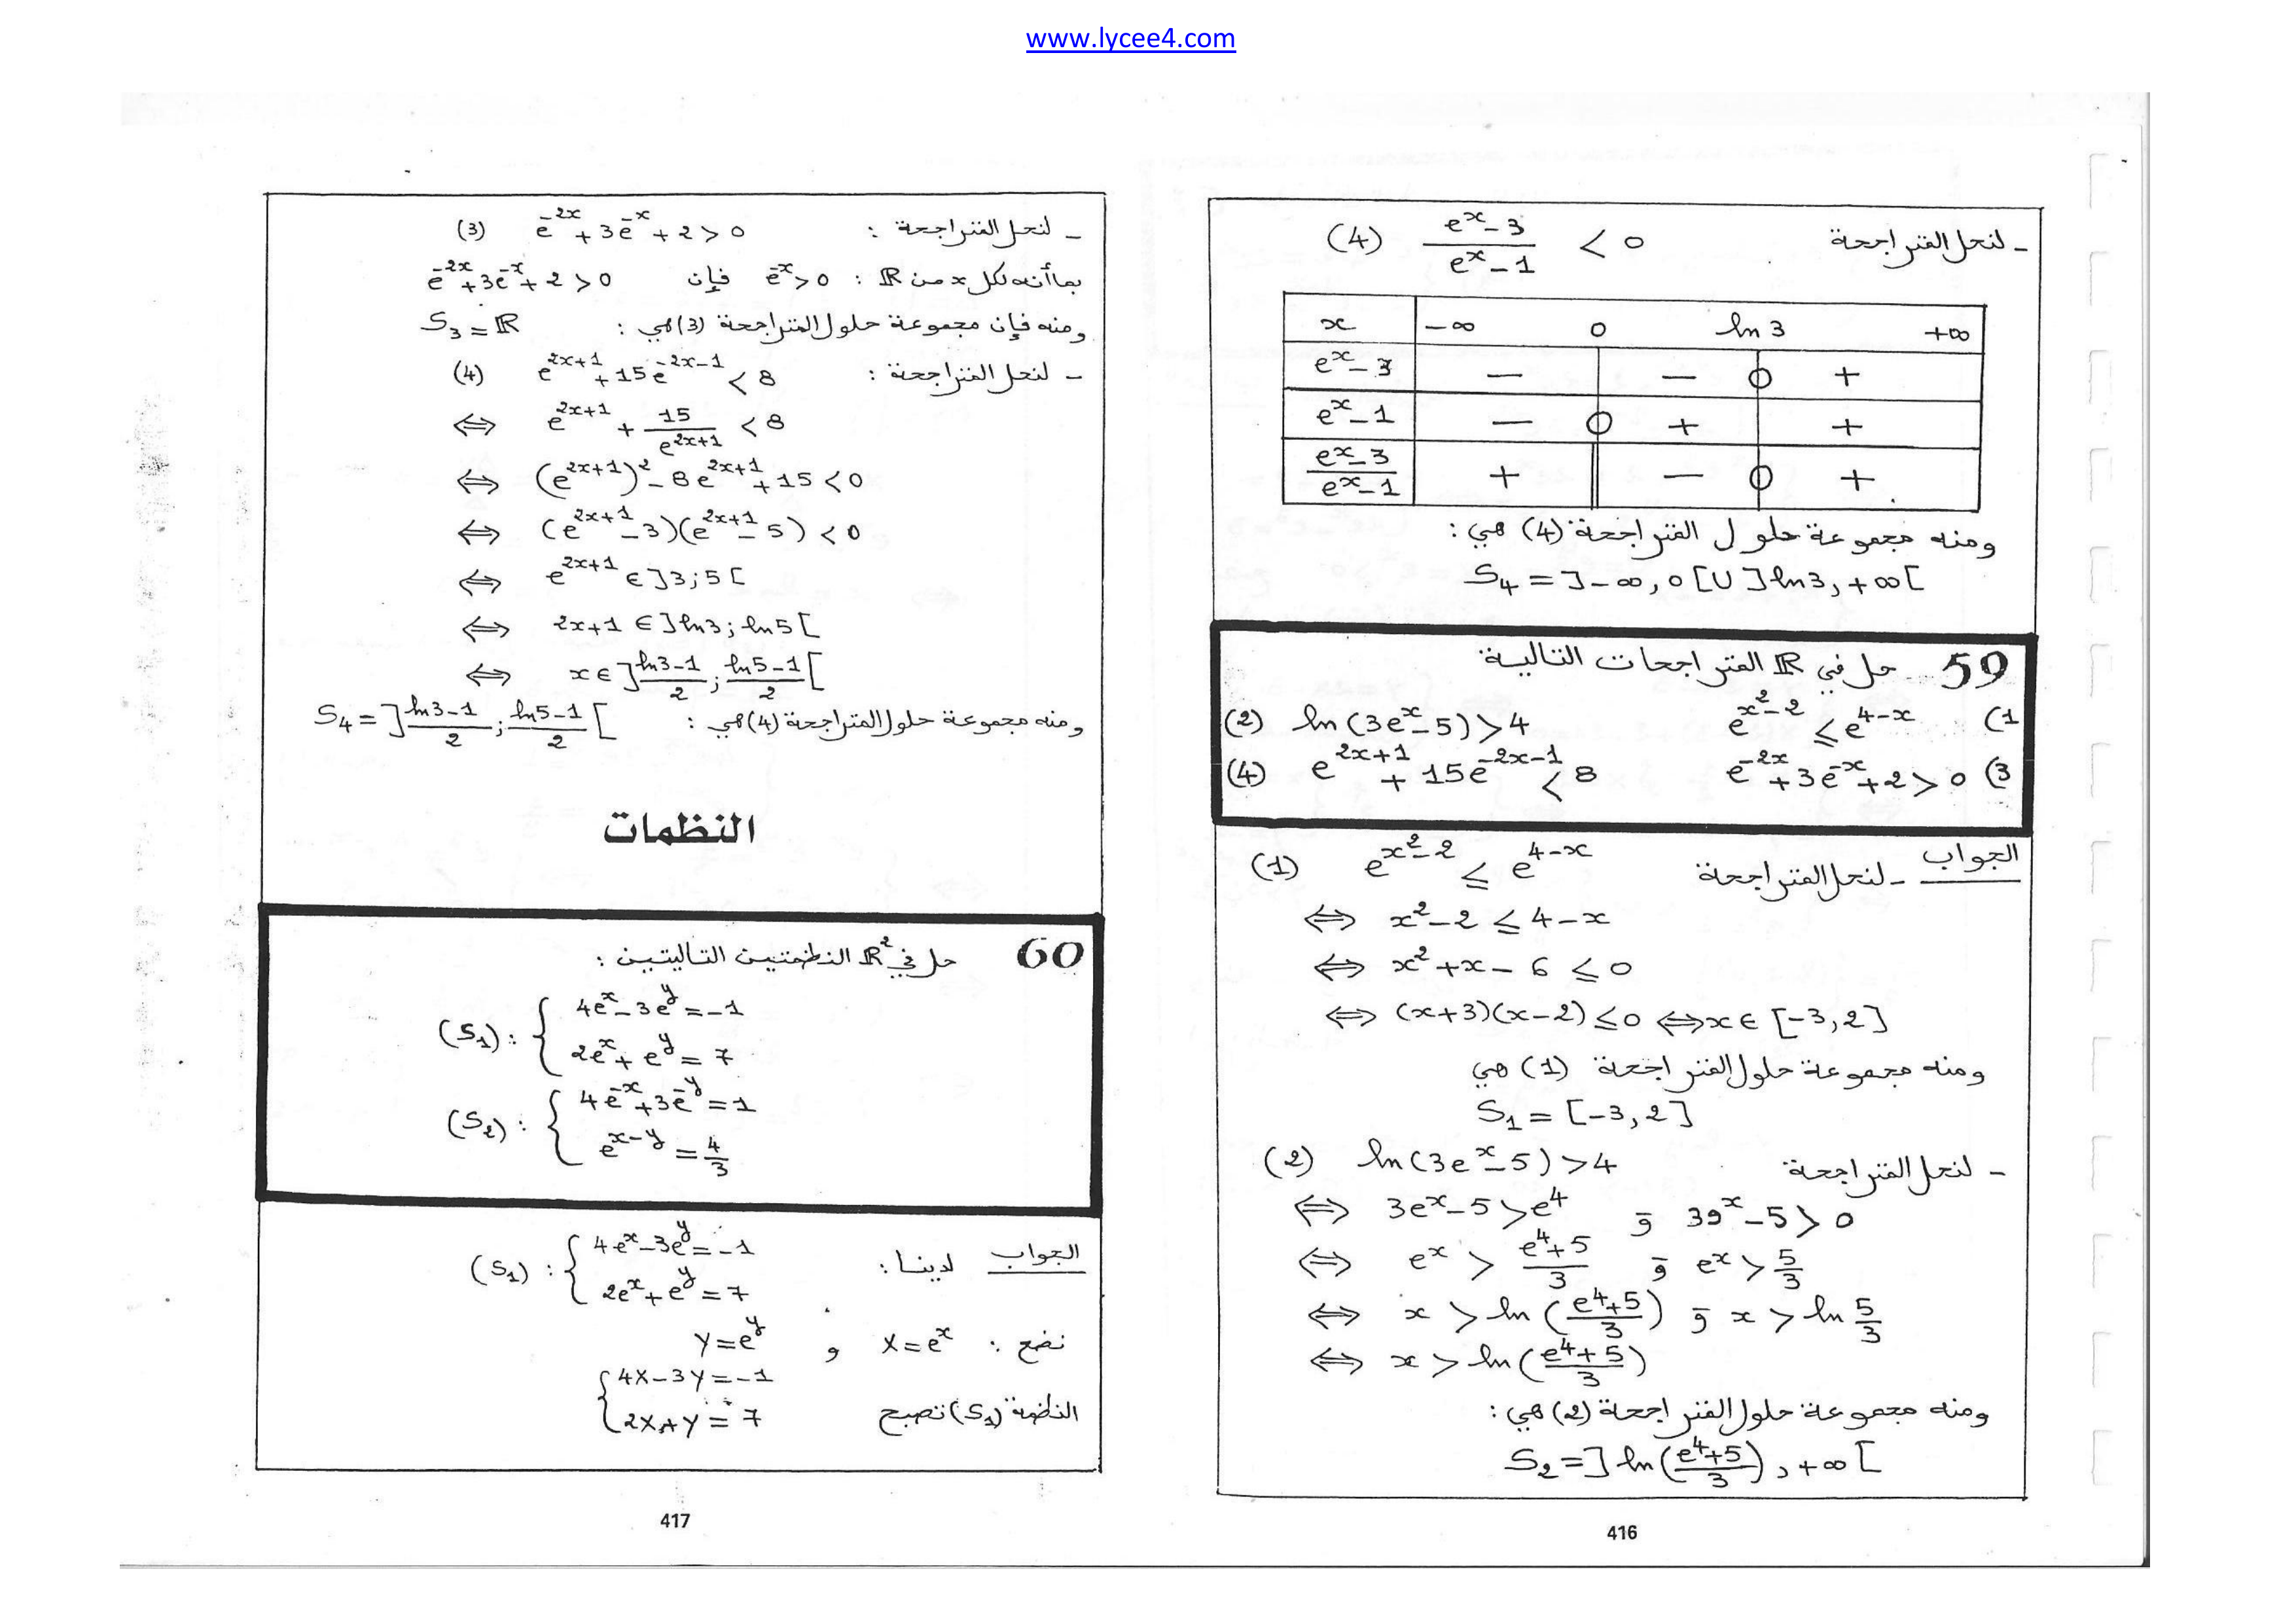 www.lycee4.com
ـ لنحل المتراجحة (4) \frac{e^x - 3}{e^x - 1} < 0
x | -∞ 0 ln 3 +∞
e^x - 3 | − − 0 +
e^x - 1 | − 0 + +
\frac{e^x - 3}{e^x - 1} | + || − 0 +
ومنه مجموعة حلول المتراجحة (4) هي :
S_4 = ]-∞, 0[ U ]ln3, +∞[
59 حل في ℝ المتراجحات التالية
(1 e^{x^2-2} ≤ e^{4-x} (2) ln(3e^x - 5) > 4
(3 e^{-2x} + 3e^{-x} + 2 > 0 (4) e^{2x+1} + 15e^{-2x-1} < 8
الجواب ـ لنحل المتراجحة (1) e^{x^2-2} ≤ e^{4-x}
⇔ x^2 - 2 ≤ 4 - x
⇔ x^2 + x - 6 ≤ 0
⇔ (x+3)(x-2) ≤ 0 ⇔ x ∈ [-3, 2]
ومنه مجموعة حلول المتراجحة (1) هي
S_1 = [-3, 2]
ـ لنحل المتراجحة (2) ln(3e^x - 5) > 4
⇔ 3e^x - 5 > e^4 و 3e^x - 5 > 0
⇔ e^x > \frac{e^4+5}{3} و e^x > \frac{5}{3}
⇔ x > ln(\frac{e^4+5}{3}) و x > ln \frac{5}{3}
⇔ x > ln(\frac{e^4+5}{3})
ومنه مجموعة حلول المتراجحة (2) هي :
S_2 = ]ln(\frac{e^4+5}{3}), +∞[
416
ـ لنحل المتراجحة : (3) e^{-2x} + 3e^{-x} + 2 > 0
بما أنه لكل x من ℝ : e^{-x} > 0 فإن e^{-2x} + 3e^{-x} + 2 > 0
ومنه فإن مجموعة حلول المتراجحة (3) هي : S_3 = ℝ
ـ لنحل المتراجحة : (4) e^{2x+1} + 15e^{-2x-1} < 8
⇔ e^{2x+1} + \frac{15}{e^{2x+1}} < 8
⇔ (e^{2x+1})^2 - 8e^{2x+1} + 15 < 0
⇔ (e^{2x+1} - 3)(e^{2x+1} - 5) < 0
⇔ e^{2x+1} ∈ ]3; 5[
⇔ 2x+1 ∈ ]ln3; ln5[
⇔ x ∈ ]\frac{ln3-1}{2}; \frac{ln5-1}{2}[
ومنه مجموعة حلول المتراجحة (4) هي : S_4 = ]\frac{ln3-1}{2}; \frac{ln5-1}{2}[
النظمات
60 حل في ℝ^2 النظمتين التاليتين :
(S_1) : { 4e^x - 3e^y = -1
2e^x + e^y = 7
(S_2) : { 4e^{-x} + 3e^{-y} = 1
e^{x-y} = \frac{4}{3}
الجواب لدينا : (S_1) : { 4e^x - 3e^y = -1
2e^x + e^y = 7
نضع : X = e^x و Y = e^y
النظمة (S_1) تصبح { 4X - 3Y = -1
2X + Y = 7
417